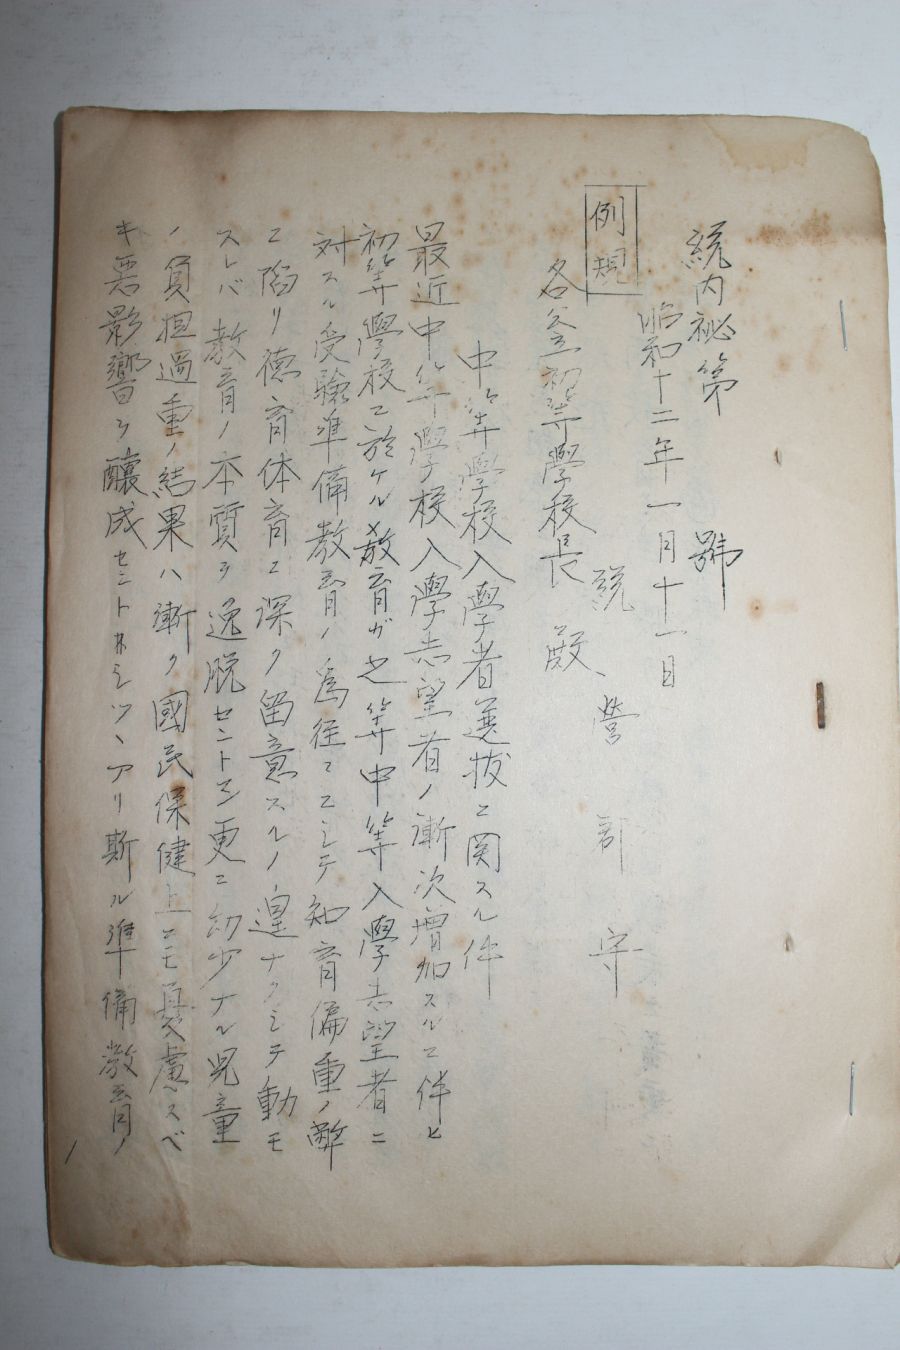 統内祕第　　號
昭和十二年一月十一日
例規
統營郡守
各公立初等學校長殿
中等學校入學者選拔ニ関スル件
最近中等学校入學志望者ノ漸次増加スルニ伴ヒ
初等學校ニ於ケル教育ガ之等中等入學志望者ニ
対スル受驗準備教育ノ為往々ニシテ知育偏重ノ弊
ニ陷リ徳育体育ニ深ク留意スルノ遑ナクシテ動モ
スレバ教育ノ本質ヲ逸脱セントシ更ニ幼少ナル児童
ノ負担過重ノ結果ハ漸ク國民保健上ニモ憂慮スベ
キ悪影響ヲ釀成セントシツヽアリ斯ル準備教育ノ